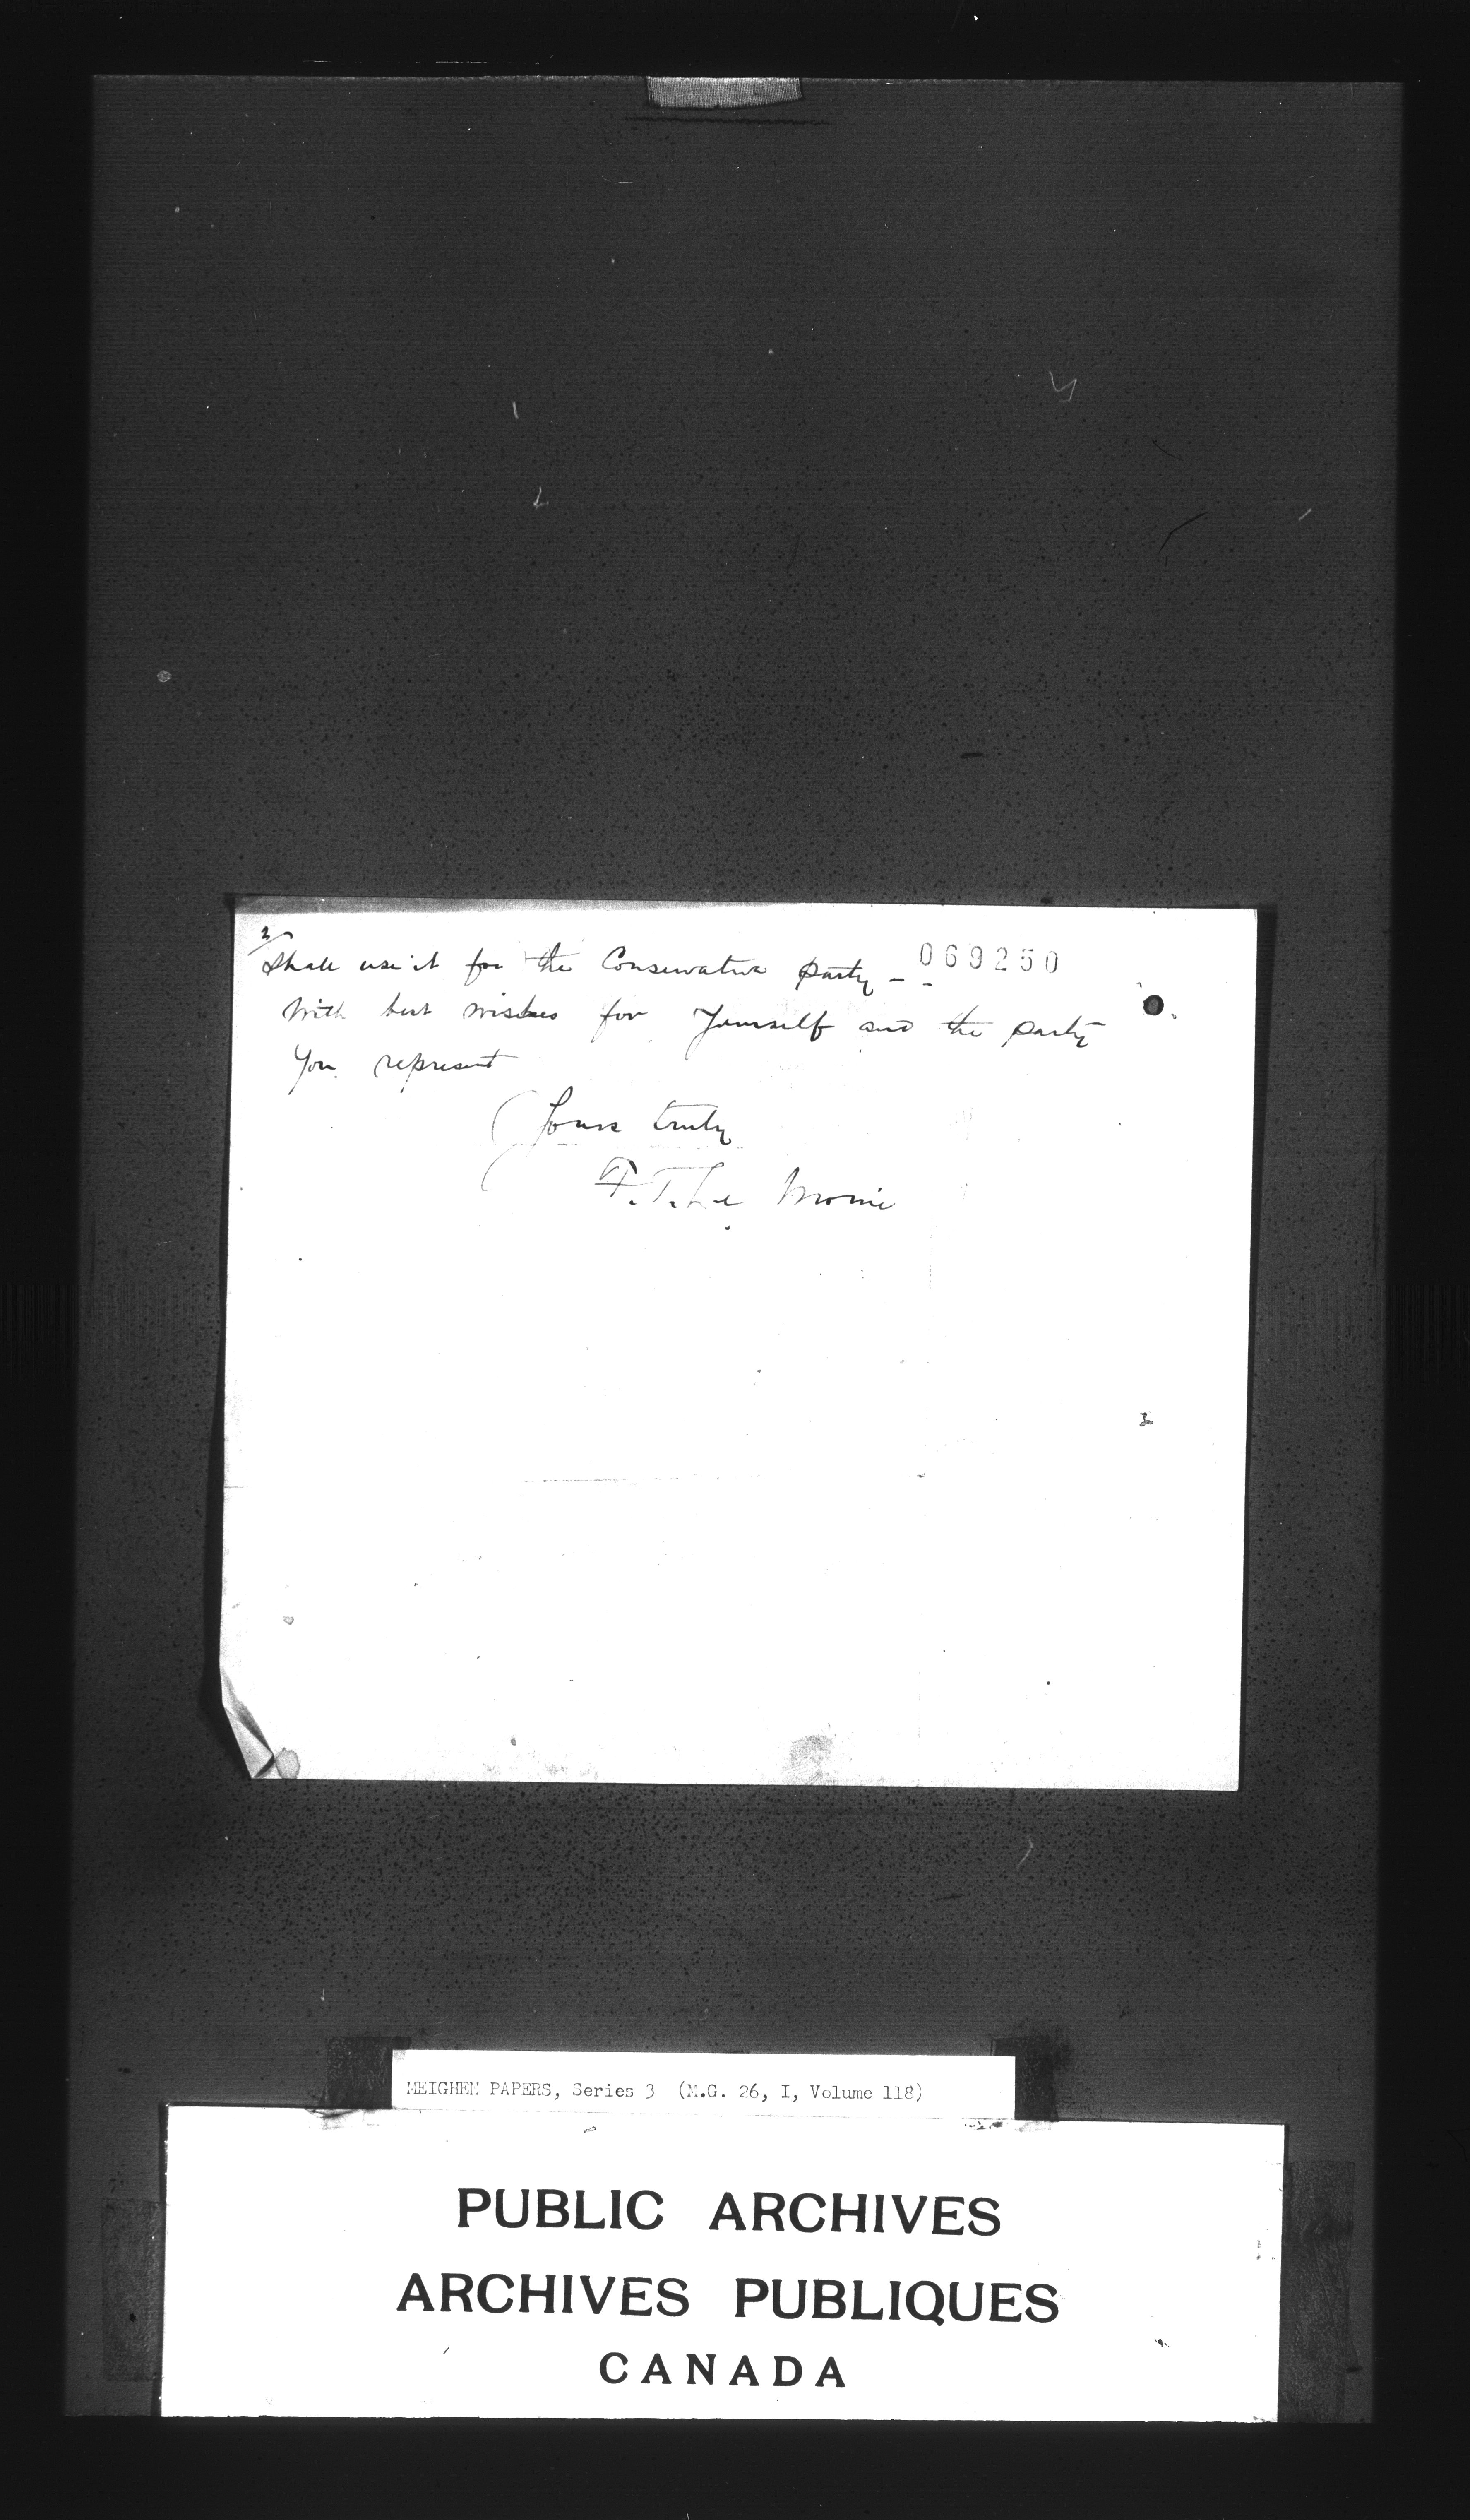 2/
shall use it for the Conservative party -- 069250
With best wishes for Yourself and the party
You represent
Yours truly
F. T. Le
MEIGHEN PAPERS, Series 3 (M.G. 26, I, Volume 118)
PUBLIC ARCHIVES
ARCHIVES PUBLIQUES
CANADA